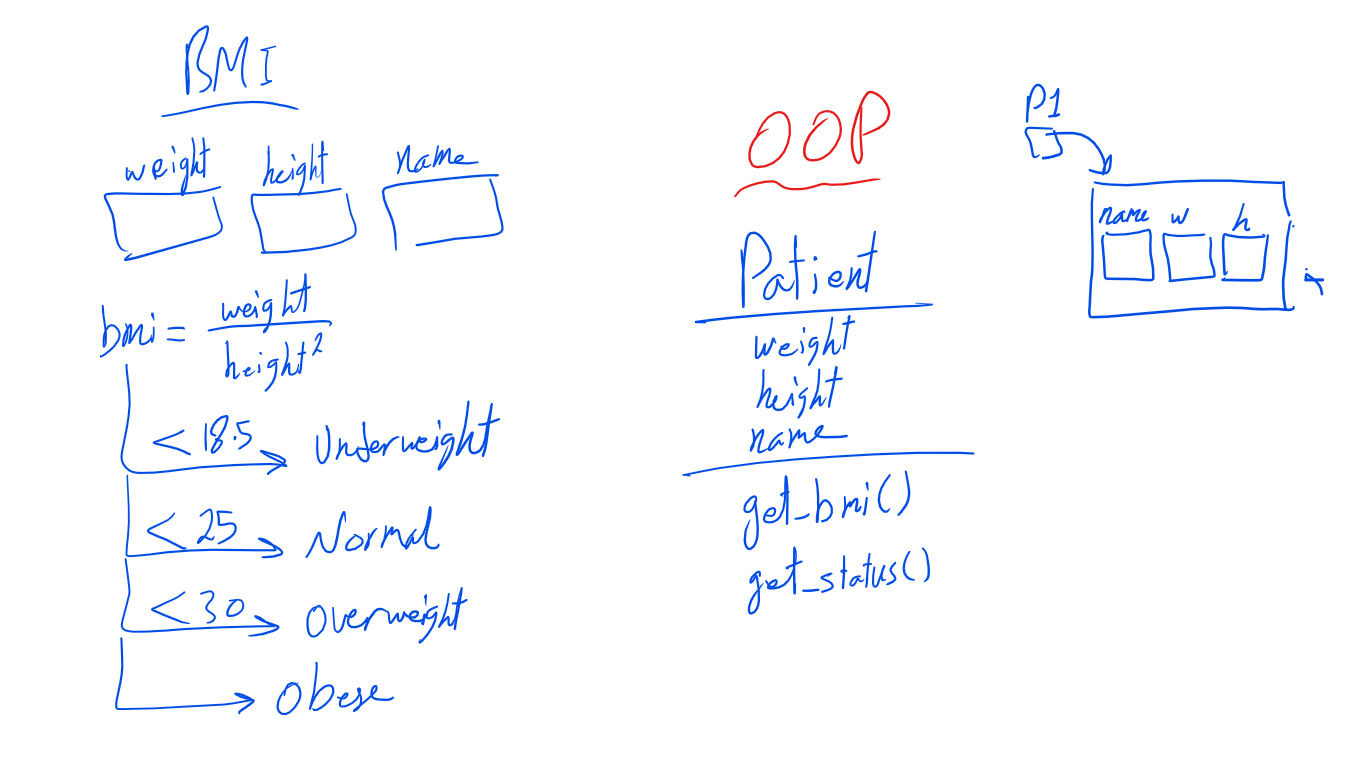 BMI
weight height name
bmi = weight / height²
< 18.5 Underweight
< 25 Normal
< 30 Overweight
Obese
OOP
Patient
weight
height
name
get_bmi()
get_status()
P1
name w h